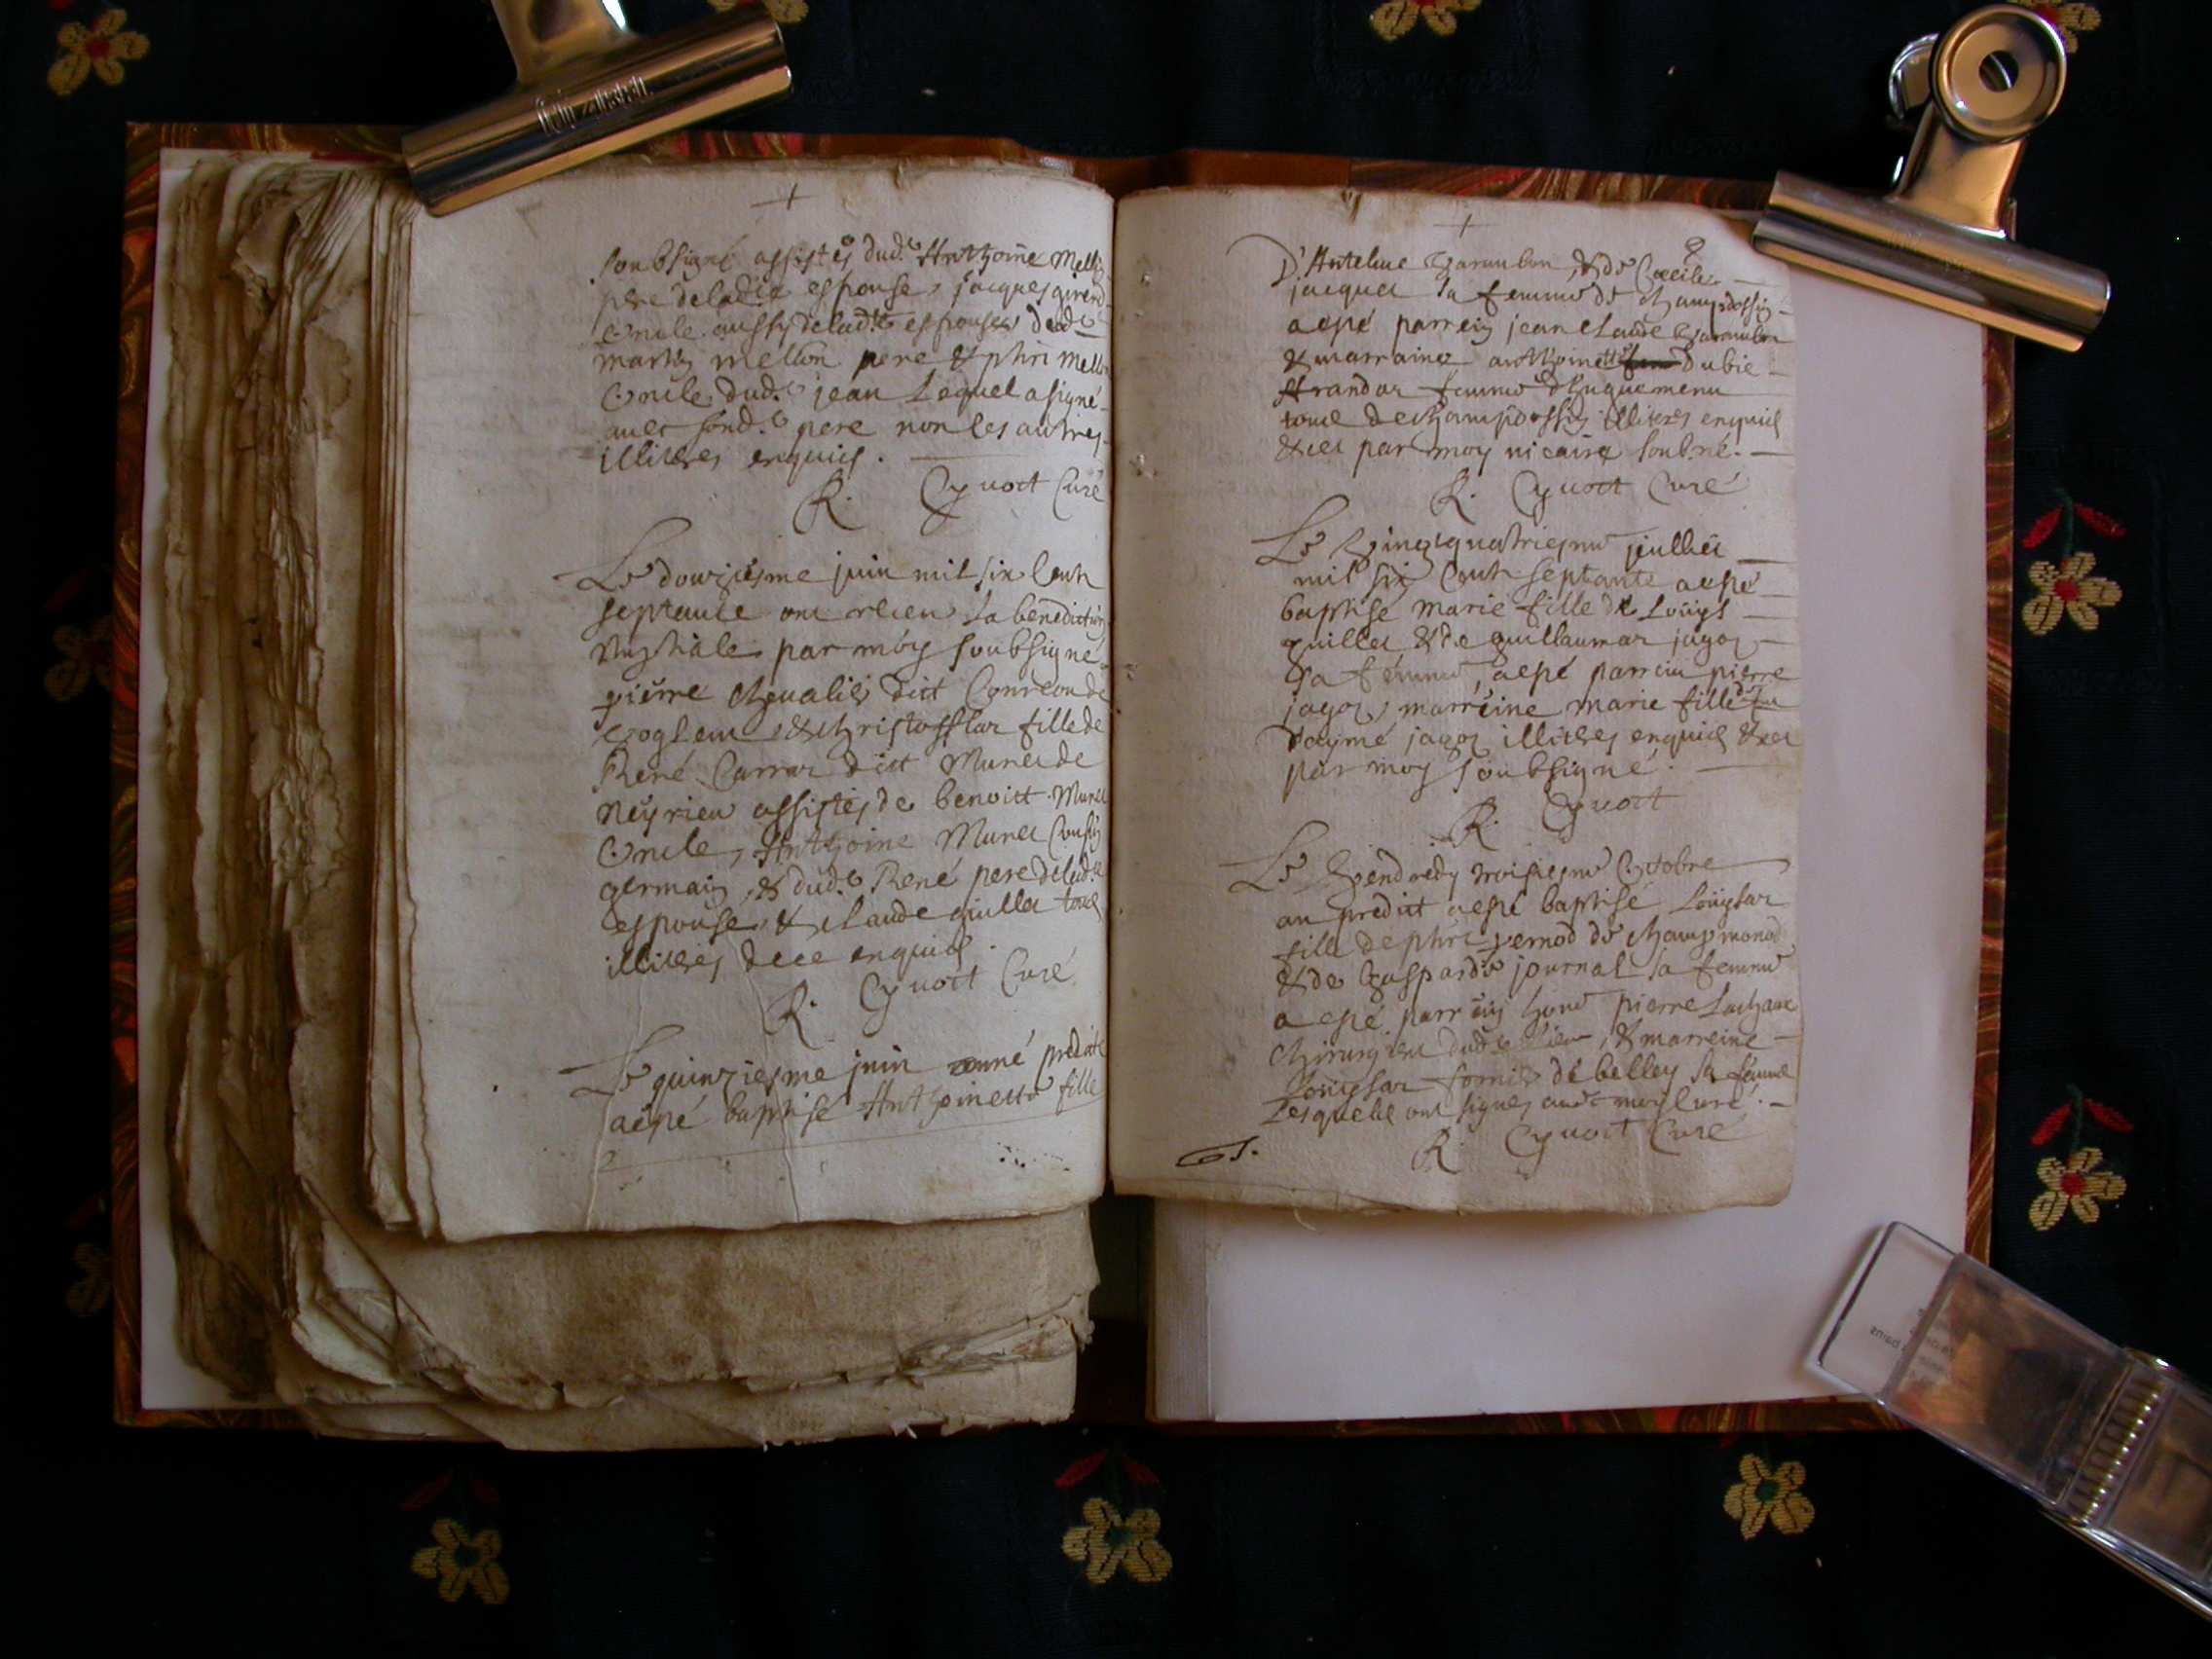 soubsigné assistés dud.t Anthoine Mellon
père delad.te espouse, jacques girend
Oncle aussy delad.te espouse, dud.t
martin mellon pere & phri mellon
Oncle dud.t jean Lequel a signé
avec sond.t pere non les autres
illitérés enquis.
R. Cyvoct Curé
Le douziesme juin mil six Cents
septante ont receu la benediction
Nuptiale par moy soubsigné
pierre chevalier ditt Courteon de
& christofflar fille de
René Carrar ditt Muret de
Neyrieu assistés de benoitt Muret
Oncle, Anthoine Muret Cousin
germain, & dud.t René pere delad.te
espouse, & Claude guillet tous
illitérés de ce enquis.
R. Cyvoct Curé
Le quinziesme juin année prédite
a esté baptisé Anthoinette fille
D'Antelme & de Cœcile
jacquet sa femme de champdossin
a esté parrein jean Claude
& marraine anthoinette dubie
Arandar femme
tous de champdossin illitérés enquis
& ce par moy vicaire soub.né.
R. Cyvoct Curé
Le Vingt quatriesme juillet
mil six Cents septante a esté
baptisé marie fille de Louys
guillet & de guillaumar jagoz
sa femme, a esté parrein pierre
jagoz, marreine marie fille de feu
d'aymé jagoz illitérés enquis & ce
par moy soubsigné.
R. Cyvoct
Le Vendredy troisiesme Octobre
an préditt a esté baptisé Louysar
fille de phri pernod de champmonod
& de Gasparde journal sa femme
a esté parrein hono pierre Lachaux
Chirurgien dud.t lieu, & marreine
Louysar fornier de belley sa femme
Lesquels ont signés avec moy curé.
R. Cyvoct Curé